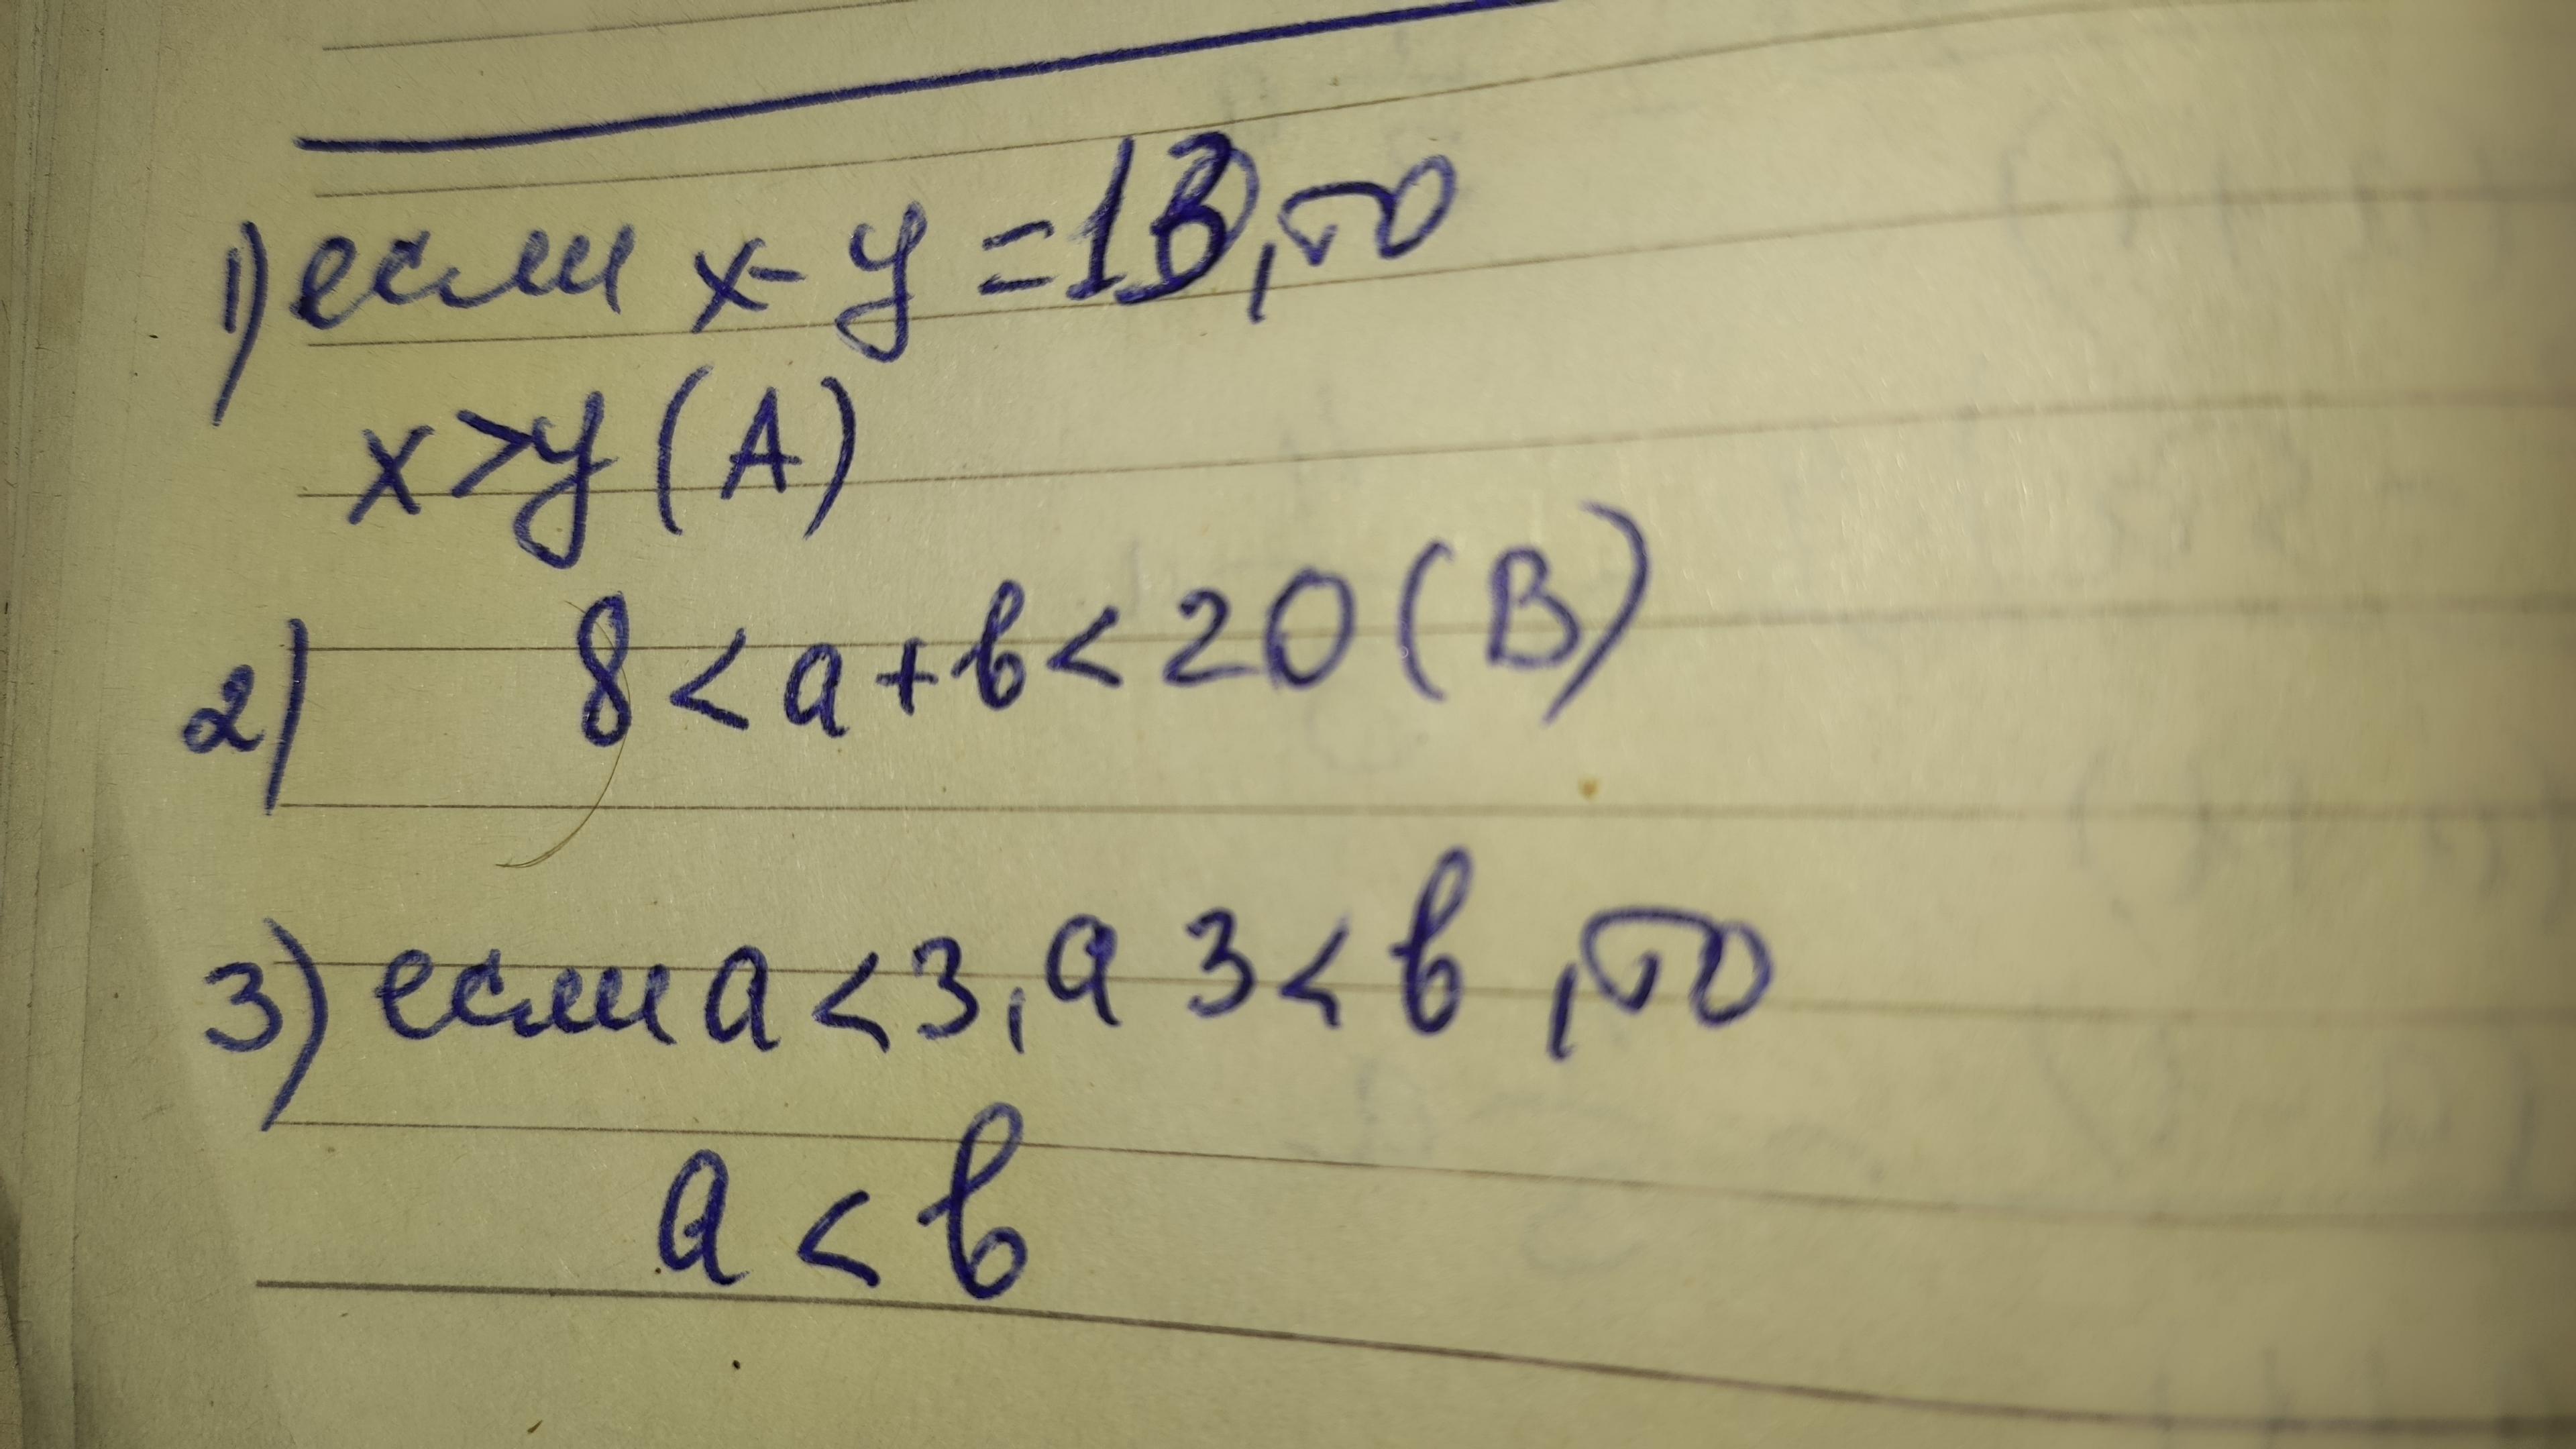 1) если x - y = 13, то
x > y (A)
2) 8 < a + b < 20 (B)
3) если a < 3, а 3 < b, то
a < b